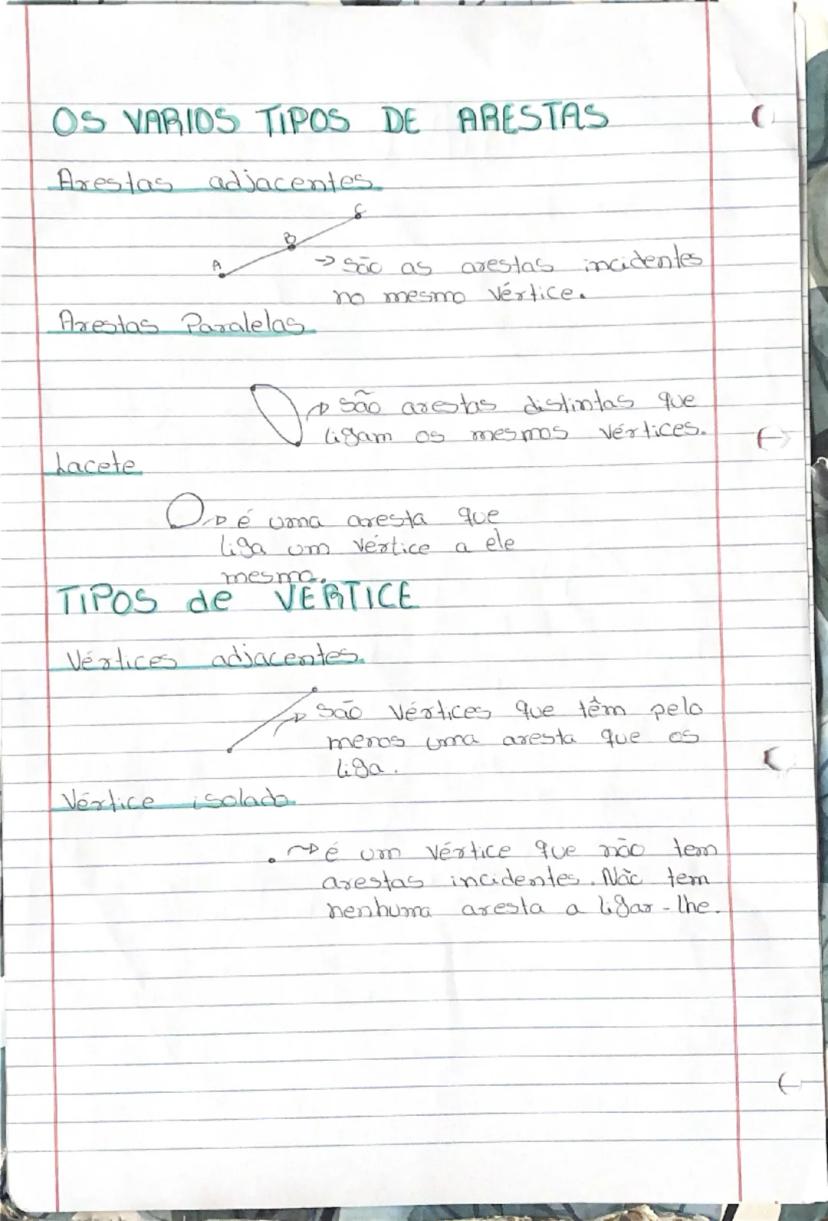 OS VARIOS TIPOS DE ARESTAS
Arestas adjacentes
A B C
→ são as arestas incidentes
no mesmo vértice.
Arestas Paralelas
→ são arestas distintas que
ligam os mesmos vértices.
Lacete
→ é uma aresta que
liga um vértice a ele
mesmo.
TIPOS de VÉRTICE
Vértices adjacentes.
→ são vértices que têm pelo
menos uma aresta que os
liga.
Vértice isolado
→ é um vértice que não tem
arestas incidentes. Não tem
nenhuma aresta a ligar-lhe.